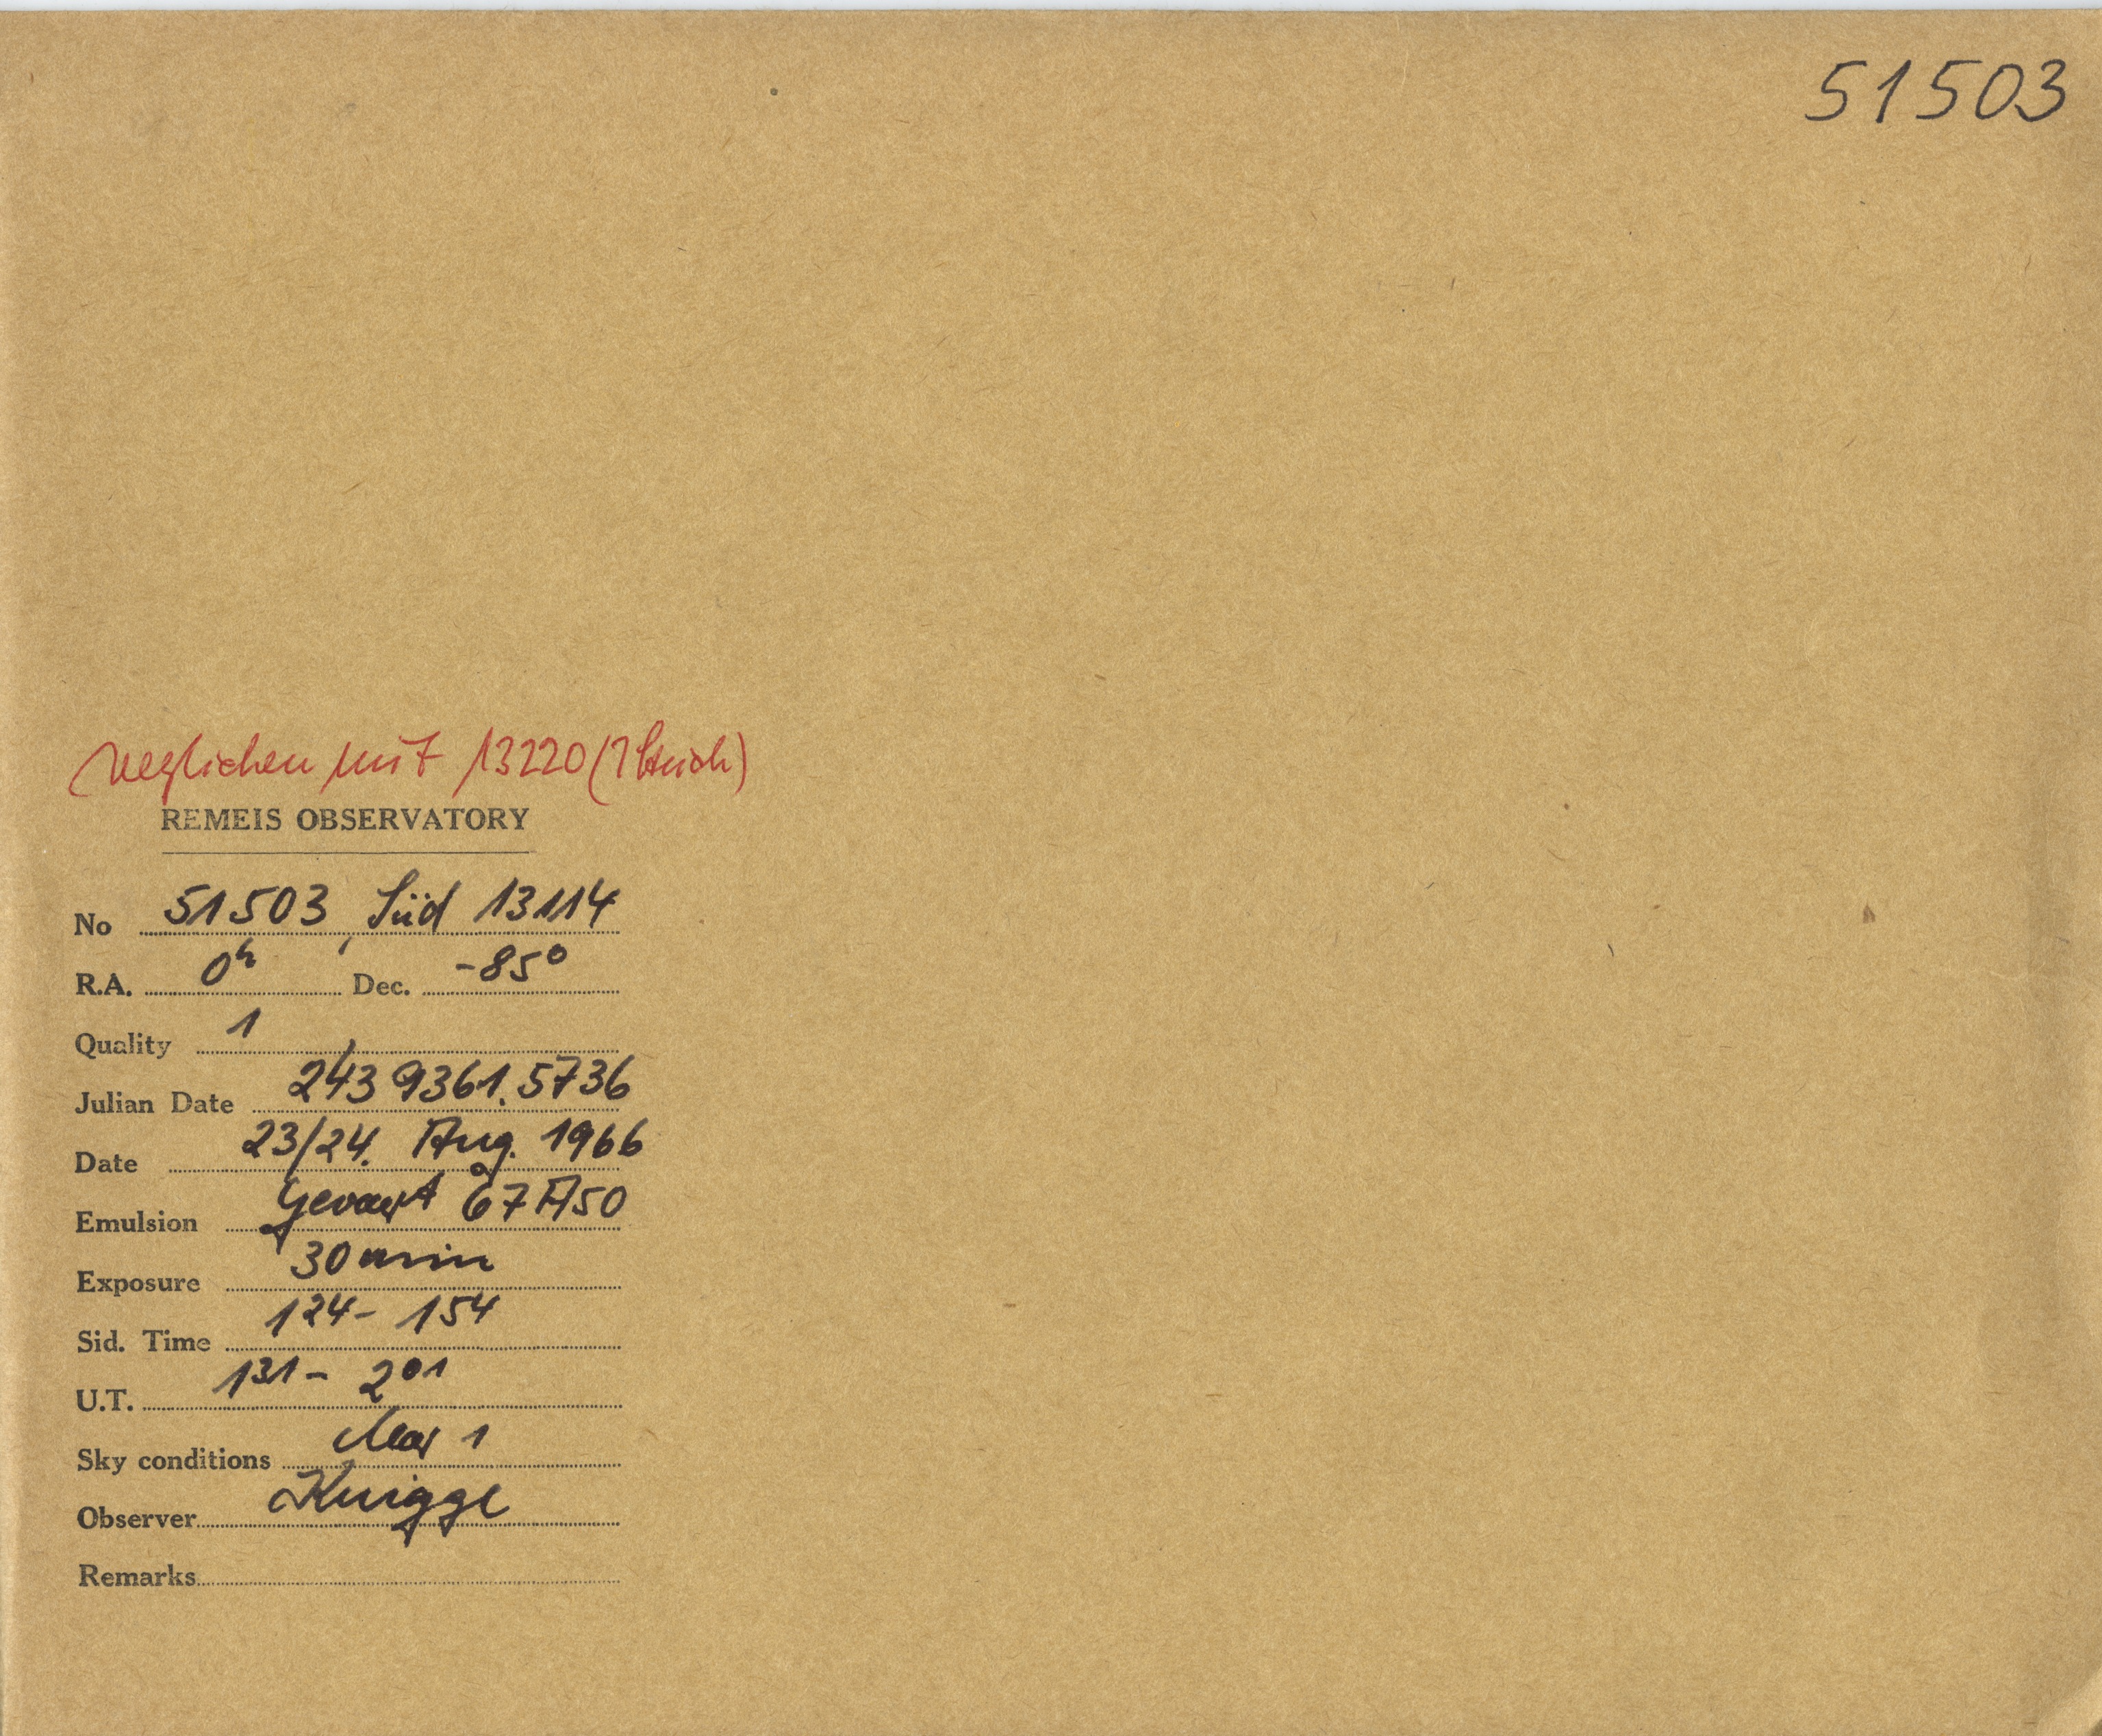 51503
verglichen mit 13220 (? Strich)
REMEIS OBSERVATORY
No 51503, Süd 13114
R.A. 0h Dec. -85°
Quality 1
Julian Date 243 9361.5736
Date 23/24. Aug. 1966
Emulsion Gevaert 67A50
Exposure 30 min
Sid. Time 1 24 - 1 54
U.T. 1 31 - 2 01
Sky conditions clear 1
Observer Knigge
Remarks